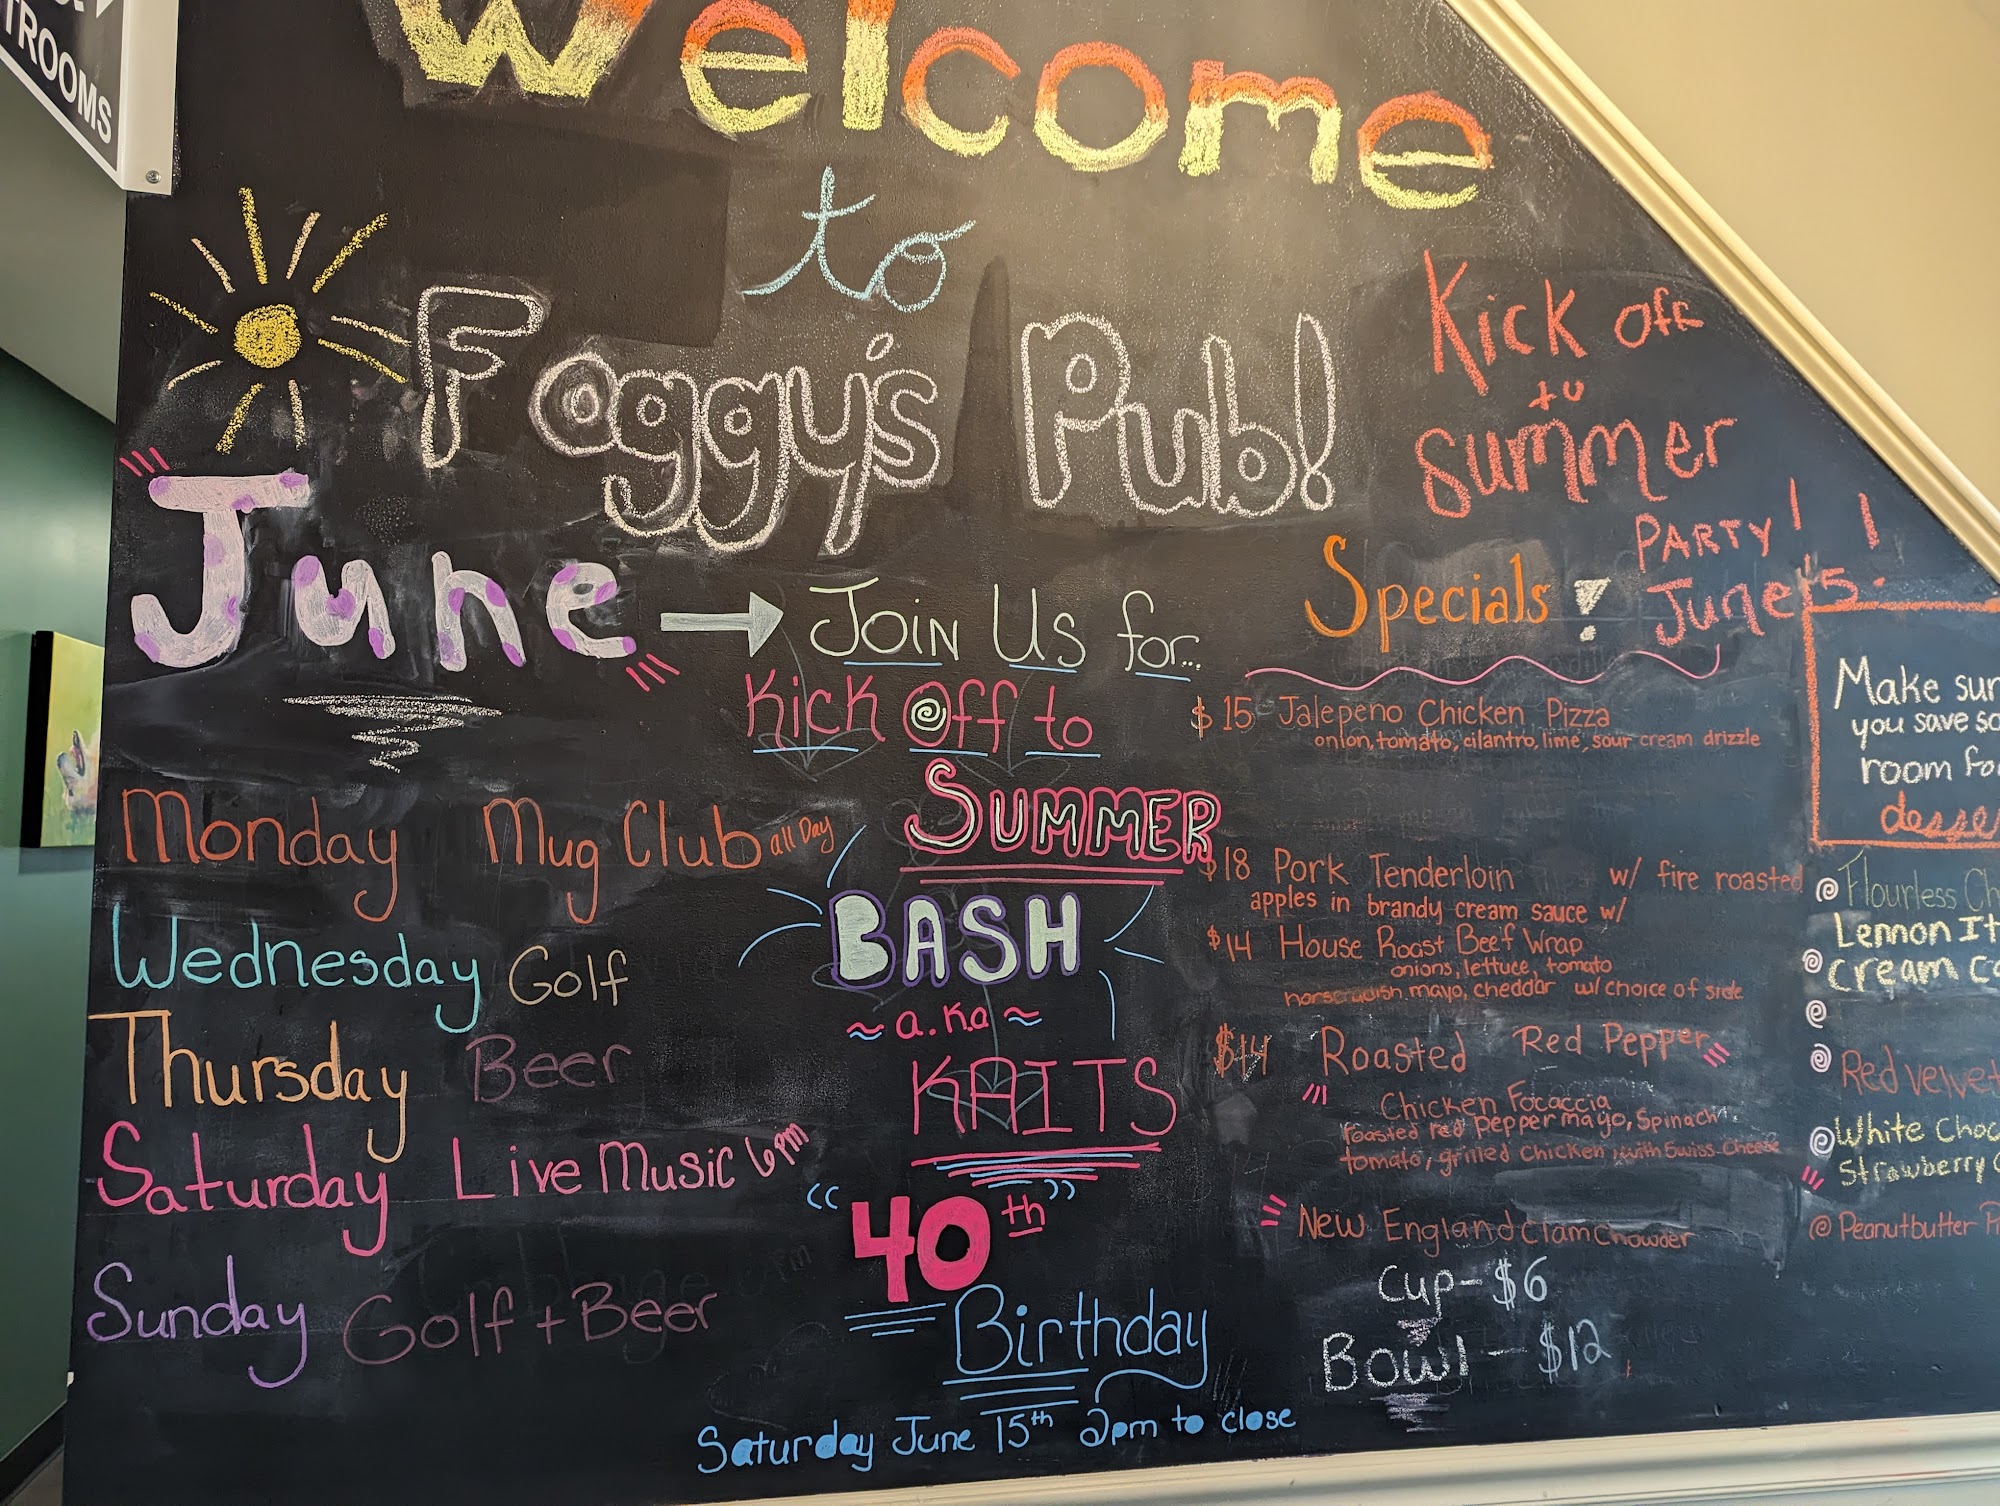 TROOMS
Welcome
to
Foggy's Pub!
Kick off
to
summer
PARTY!!
June 15.
June → Join Us for...
Kick Off to
SUMMER
BASH
~ a.k.a ~
KAITS
"40th"
Birthday
Saturday June 15th 2pm to close
Monday Mug Club all Day
Wednesday Golf
Thursday Beer
Saturday Live Music 6pm
Sunday Golf + Beer
Specials!
$15 Jalepeno Chicken Pizza
onion, tomato, cilantro, lime, sour cream drizzle
$18 Pork Tenderloin w/ fire roasted
apples in brandy cream sauce w/
$14 House Roast Beef Wrap
onions, lettuce, tomato
horseradish mayo, cheddar w/ choice of side
$14 Roasted Red Pepper
Chicken Focaccia
roasted red pepper mayo, Spinach
tomato, grilled chicken, with Swiss Cheese
New England Clam Chowder
Cup - $6
Bowl - $12
Make sur
you save so
room for
desser
Flourless Ch
Lemon It
Cream Ca
Red velvet
White Choc
Strawberry
@ Peanutbutter